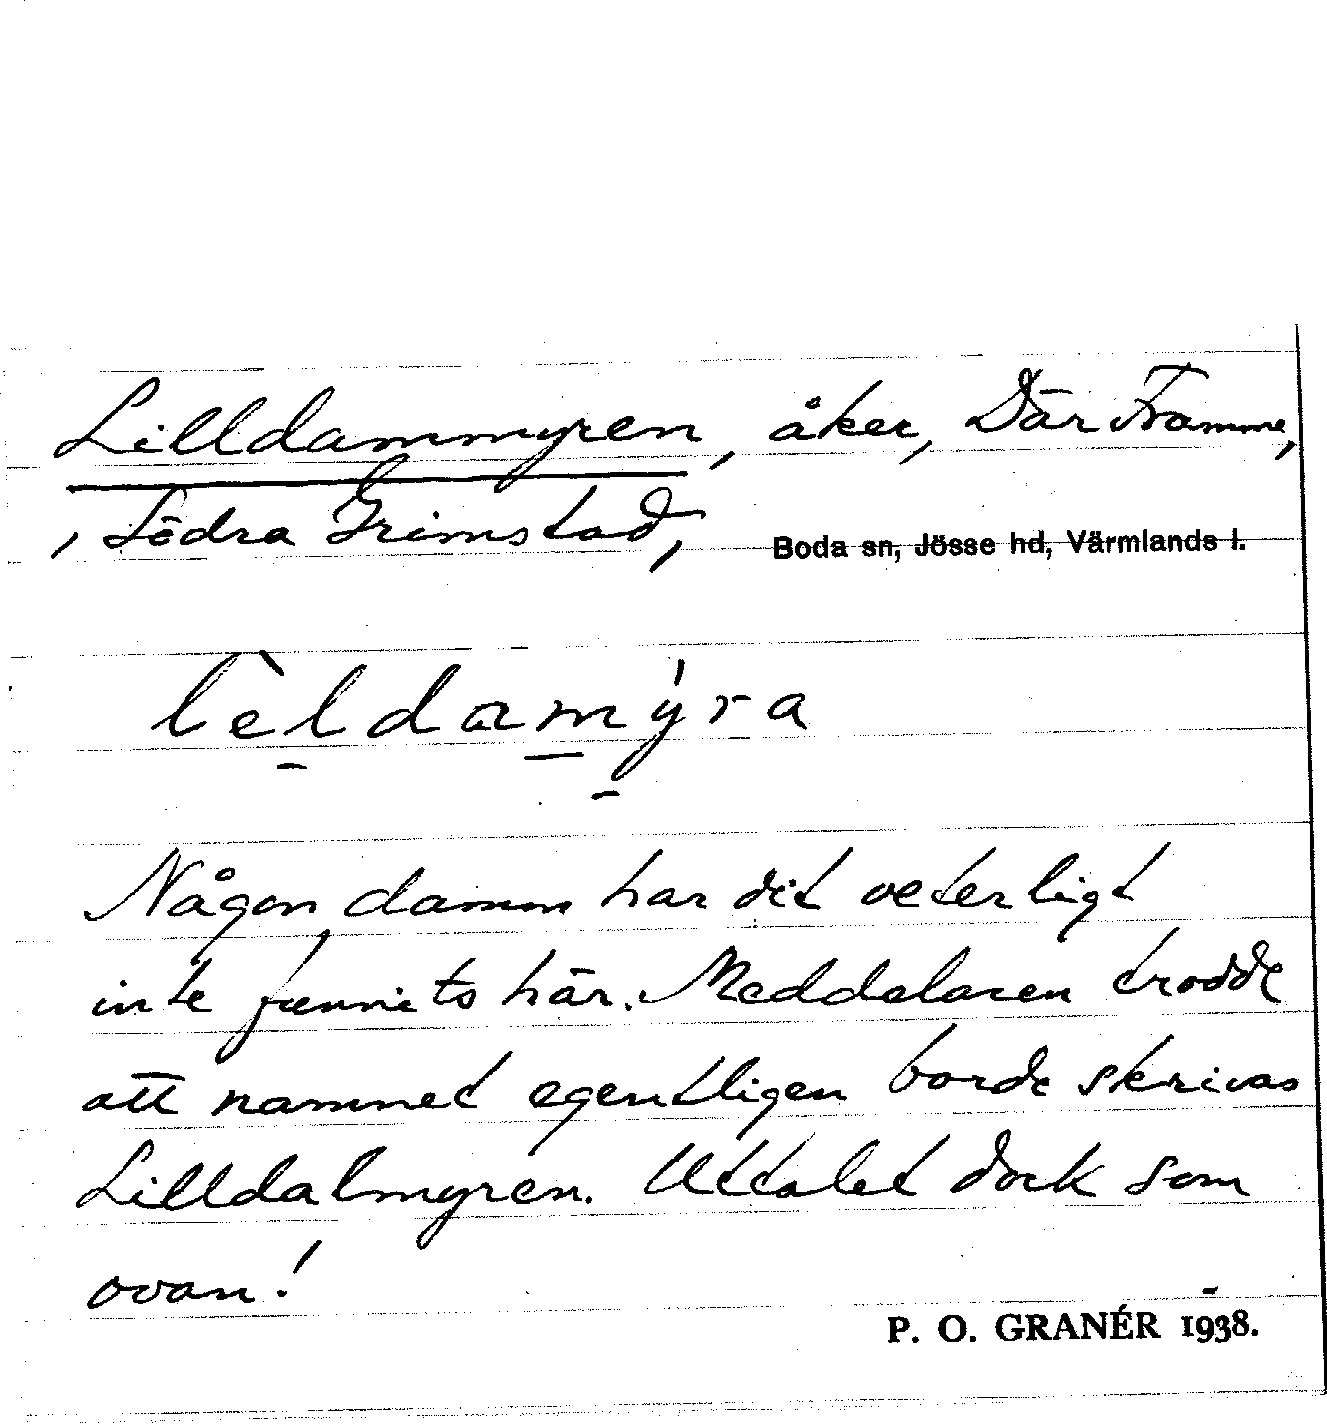 Lilldammyren, åker, Där Framme,
, Södra Grimstad, Boda sn, Jösse hd, Värmlands l.
lèldamýra
Någon damm har det veterligt
inte funnits här. Meddelaren trodde
att namnet egentligen borde skrivas
Lilldalmyren. Uttalet dock som
ovan!
P. O. GRANÉR 1938.